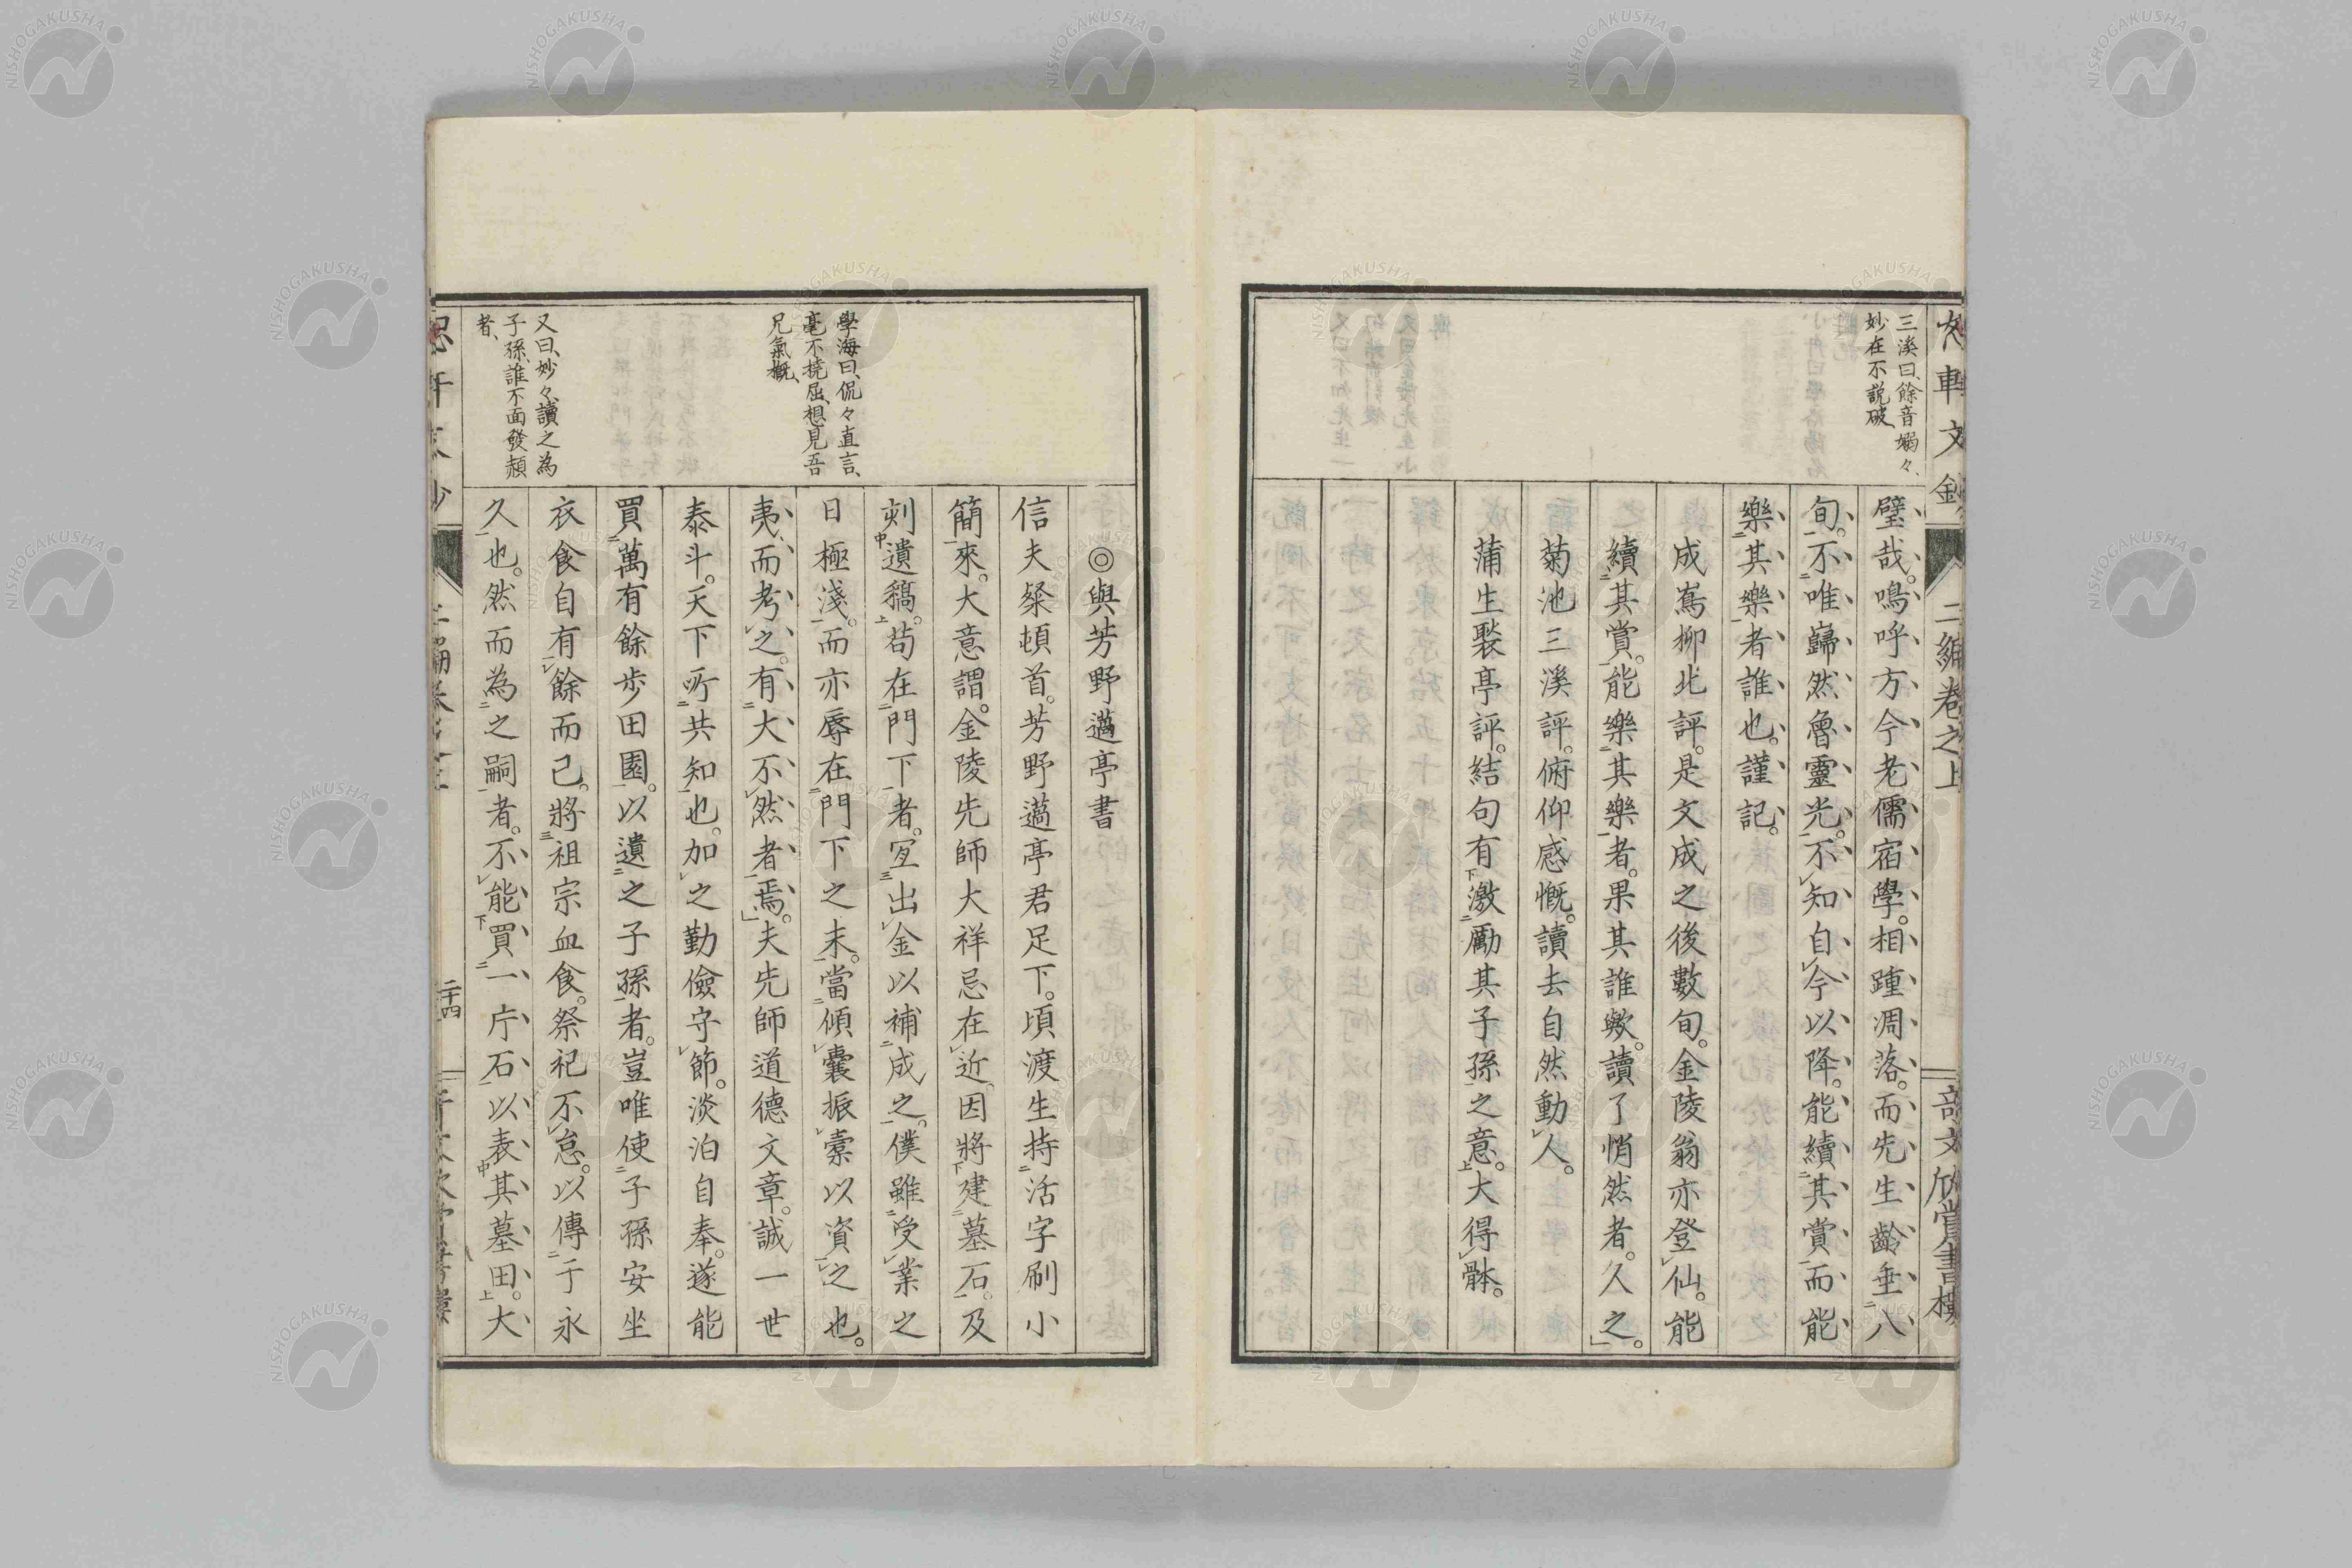 三溪曰、餘音嫋々、
妙在不説破、
璧哉。嗚呼方今老儒宿學。相踵凋落。而先生齡垂八
旬。不唯巋然魯靈光。不知自今以降。能續其賞而能
樂其樂者誰也。謹記。
成嶌柳北評。是文成之後數旬。金陵翁亦登仙。能
續其賞。能樂其樂者。果其誰歟。讀了悄然者。久之。
菊池三溪評。俯仰感慨。讀去自然動人。
蒲生褧亭評。結句有激勵其子孫之意。大得骵。
二編卷之上
學海曰、侃々直言、
毫不撓屈、想見吾
兄氣概、
又曰、妙々、讀之為
子孫、誰不面發頳
者、
◎與芳野邁亭書
信夫粲頓首。芳野邁亭君足下。頃渡生持活字刷小
簡來。大意謂。金陵先師大祥忌在近。因將建墓石。及
刻遺稿。苟在門下者。冝出金以補成之。僕雖受業之
日極淺。而亦辱在門下之末。當傾囊振橐以資之也。
夷而考之。有大不然者焉。夫先師道德文章。誠一世
泰斗。天下所共知也。加之勤儉守節。淡泊自奉。遂能
買萬有餘步田園。以遺之子孫者。豈唯使子孫安坐
衣食自有餘而已。將祖宗血食。祭祀不怠。以傳于永
久也。然而為之嗣者。不能買一片石。以表其墓田。大
二十四